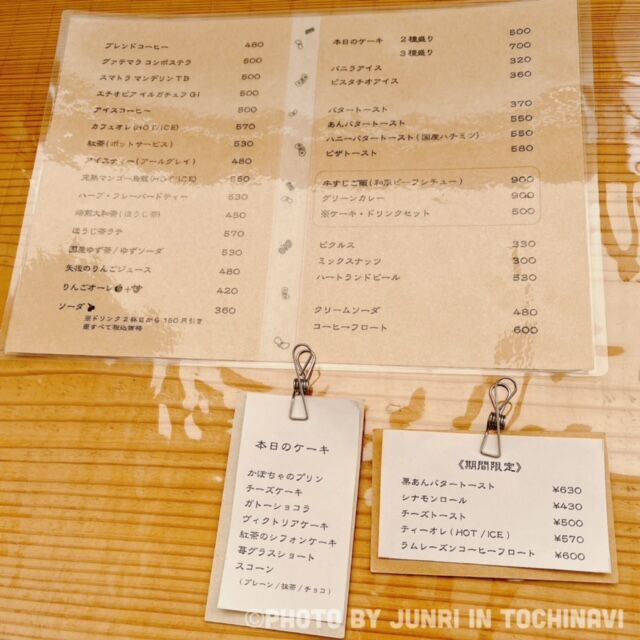 ブレンドコーヒー 480
グァテマラ コンポステラ 500
スマトラ マンデリンTB 500
エチオピア イルガチェフG1 500
アイスコーヒー 500
カフェオレ(HOT/ICE) 570
紅茶(ポットサービス) 530
アイスティー(アールグレイ) 480
完熟マンゴー烏龍(HOT/ICE) 550
ハーブ・フレーバードティー 530
焙煎大和茶(ほうじ茶) 450
ほうじ茶ラテ 570
国産ゆず茶/ゆずソーダ 530
矢板のりんごジュース 480
りんごオーレ 420
ソーダ 360
※ドリンク2杯目から150円引き
※すべて税込価格
本日のケーキ 2種盛り 500
3種盛り 700
バニラアイス 320
ピスタチオアイス 360
バタートースト 370
あんバタートースト 550
ハニーバタートースト(国産ハチミツ) 550
ピザトースト 580
牛すじご飯(和風ビーフシチュー) 900
グリーンカレー 900
※ケーキ・ドリンクセット 500
ピクルス 330
ミックスナッツ 300
ハートランドビール 530
クリームソーダ 480
コーヒーフロート 600
本日のケーキ
かぼちゃのプリン
チーズケーキ
ガトーショコラ
ヴィクトリアケーキ
紅茶のシフォンケーキ
苺グラスショート
スコーン
(プレーン/抹茶/チョコ)
《期間限定》
黒あんバタートースト ¥630
シナモンロール ¥430
チーズトースト ¥500
ティーオレ(HOT/ICE) ¥570
ラムレーズンコーヒーフロート ¥600
©PHOTO BY JUNRI IN TOCHINAVI